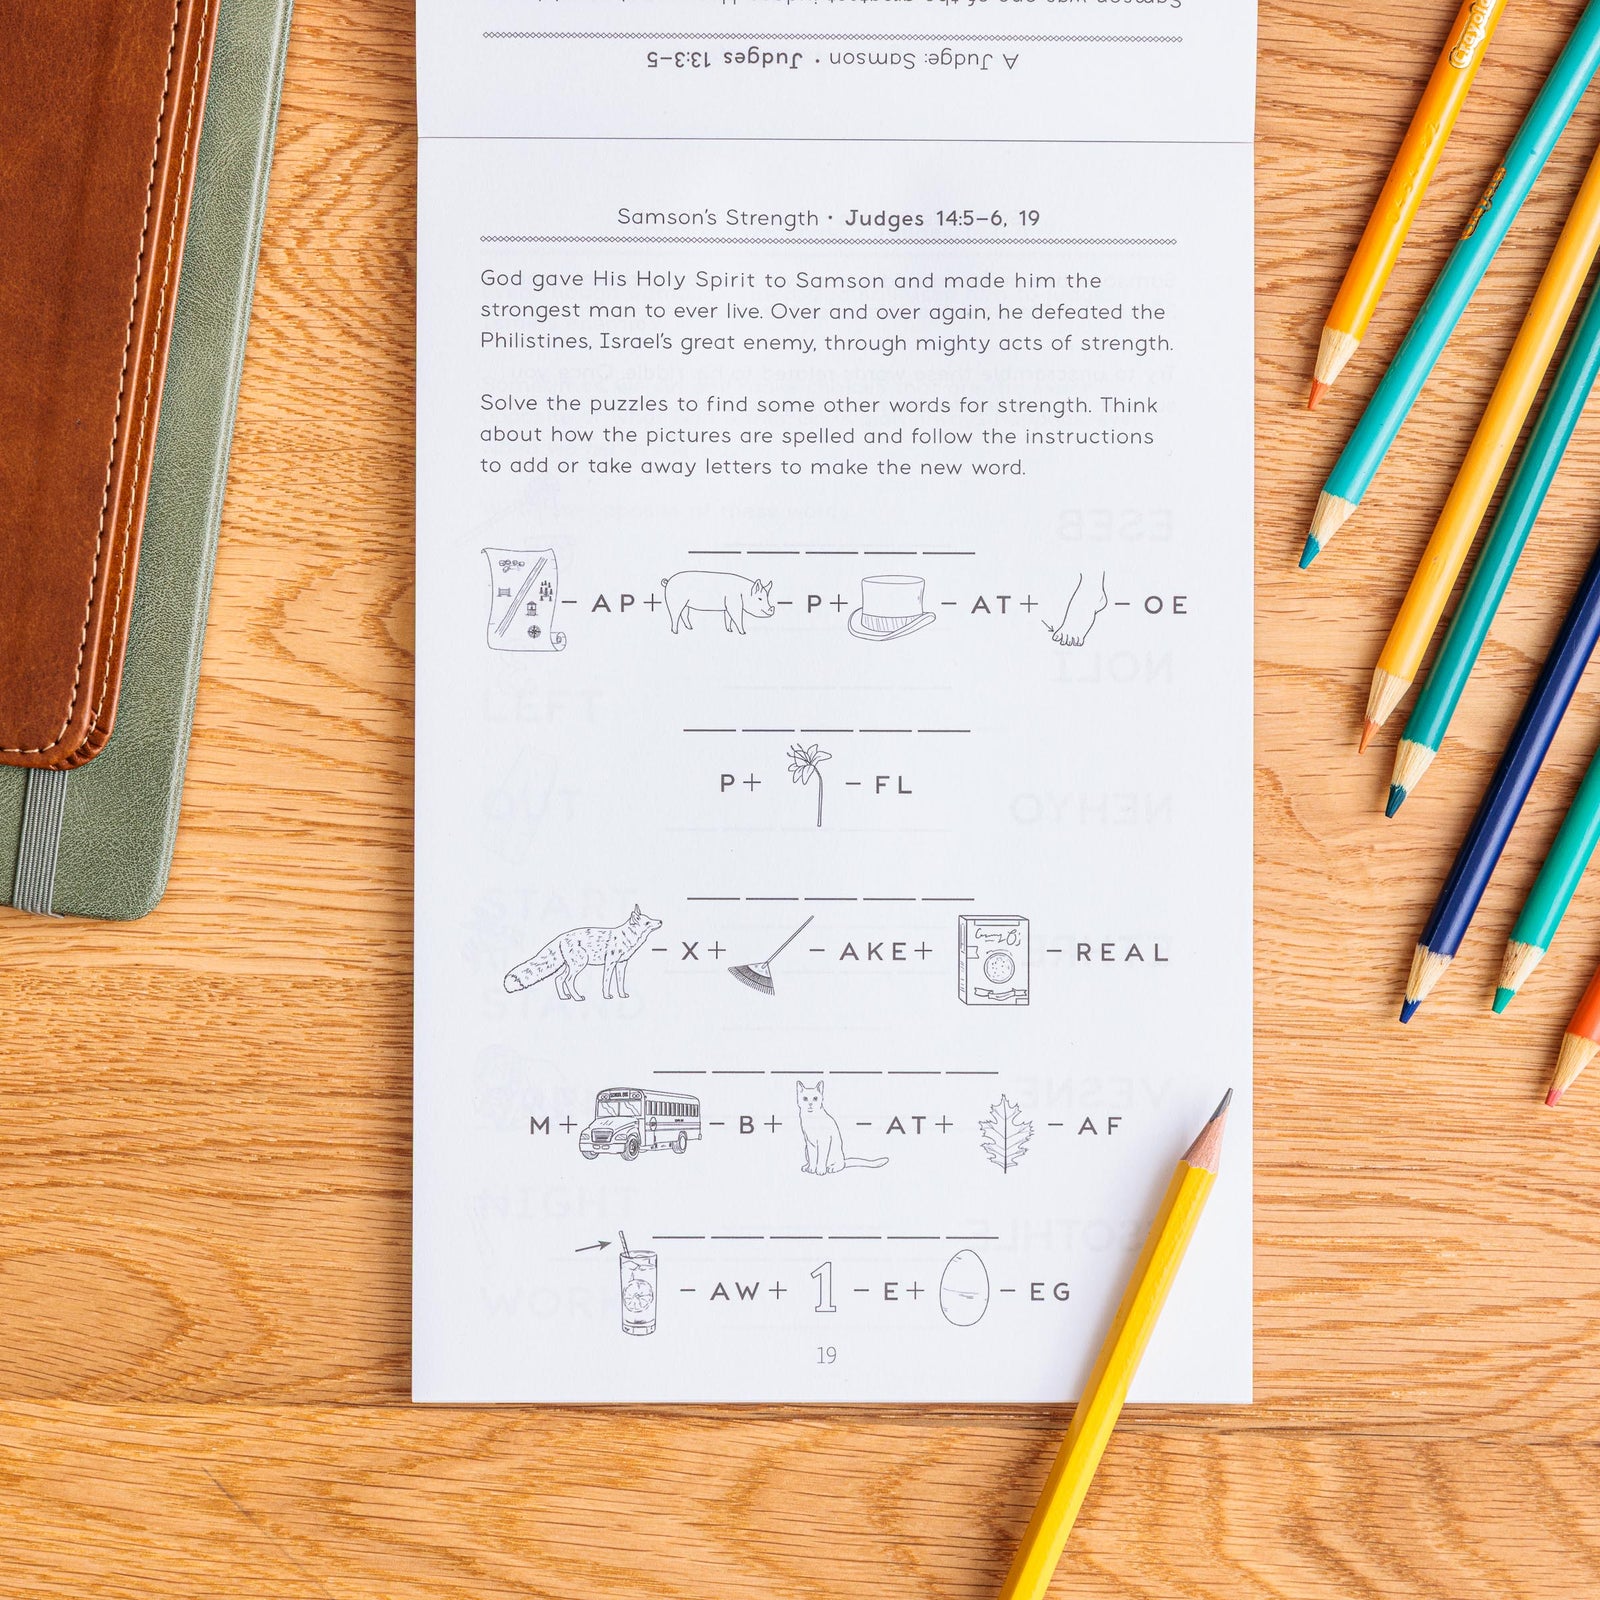 A Judge: Samson • Judges 13:3–5
Samson's Strength • Judges 14:5–6, 19
God gave His Holy Spirit to Samson and made him the
strongest man to ever live. Over and over again, he defeated the
Philistines, Israel's great enemy, through mighty acts of strength.
Solve the puzzles to find some other words for strength. Think
about how the pictures are spelled and follow the instructions
to add or take away letters to make the new word.
– AP + – P + – AT + – OE
P + – FL
– X + – AKE + – REAL
M + – B + – AT + – AF
– AW + 1 – E + – EG
19
Crayola